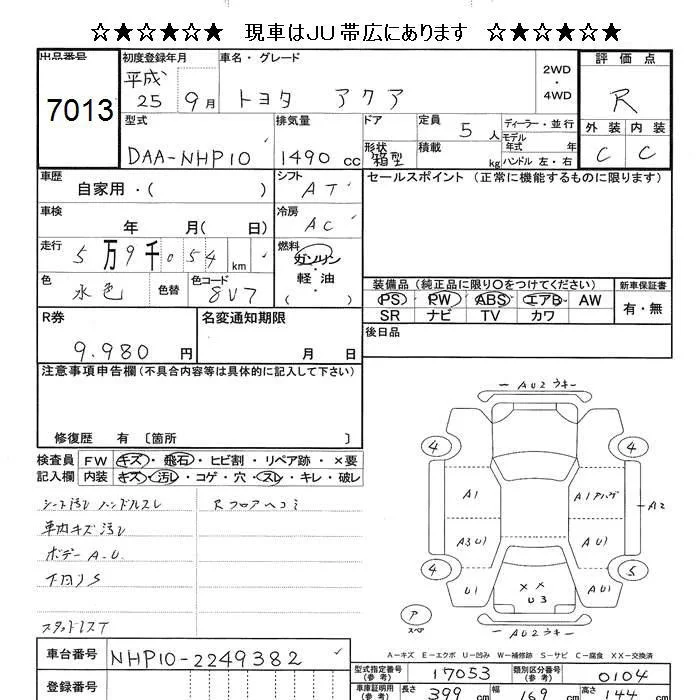 ☆★☆★☆★ 現車はJU帯広にあります ☆★☆★☆★
出品番号
7013
初度登録年月
平成
25 9月
車名・グレード
トヨタ アクア
2WD
・
4WD
評価点
R
外装 内装
C C
型式
DAA-NHP10
排気量
1490 cc
ドア
形状
箱型
定員
5人
積載
kg
ディーラー・並行
モデル
年式 年
ハンドル 左・右
車歴
自家用・( )
シフト
AT
セールスポイント (正常に機能するものに限ります)
車検
年 月( 日)
冷房
AC
走行
5万9千054 km
燃料
ガソリン
・
軽油
( )
色
水色
色替
色コード
8V7
装備品 (純正品に限り○をつけてください)
PS PW ABS エアB AW
SR ナビ TV カワ
新車保証書
有・無
R券
9.980 円
名変通知期限
月 日
後日品
注意事項申告欄 (不具合内容等は具体的に記入して下さい)
修復歴 有 〔箇所 〕
検査員
記入欄
FW キズ・飛石・ヒビ割・リペア跡・×要
内装 キズ・汚レ・コゲ・穴・スレ・キレ・破レ
シート汚レ ハンドルスレ
車内キズ汚レ
ボデーA.U.
下回りS
スタッドレスT
Rフロアヘコミ
AU2 ウキ
4 4
A1 A1アトハゲ
A3 U1 AU1
A2
4 5
U1 AU1
××
U3
ア
スペア
AU2 ウキ
A-キズ E-エクボ U-凹み W-補修跡 S-サビ C-腐食 XX-交換済
車台番号
NHP10-2249382
登録番号
型式指定番号
(参考)
17053
類別区分番号
(参考)
0104
車庫証明用
(参考)
長さ
399 cm
幅
169 cm
高さ
144 cm